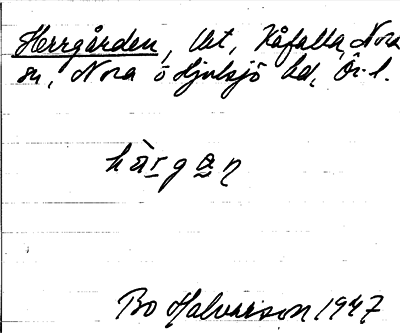 Herrgården, Vst, Kåfalla, Nora
sn, Nora o Hjulsjö bd, Ör. l.
hàrgan
Bo Halvarson 1947